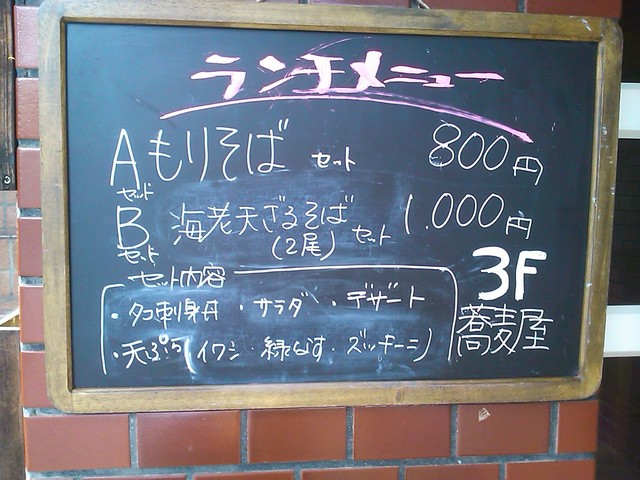 ランチメニュー
Aセット もりそば セット 800円
Bセット 海老天ざるそば セット 1.000円
(2尾)
セット内容
・タコ刺身丼 ・サラダ ・デザート
・天ぷら(イワシ・緑なす・ズッキーニ)
3F
蕎麦屋